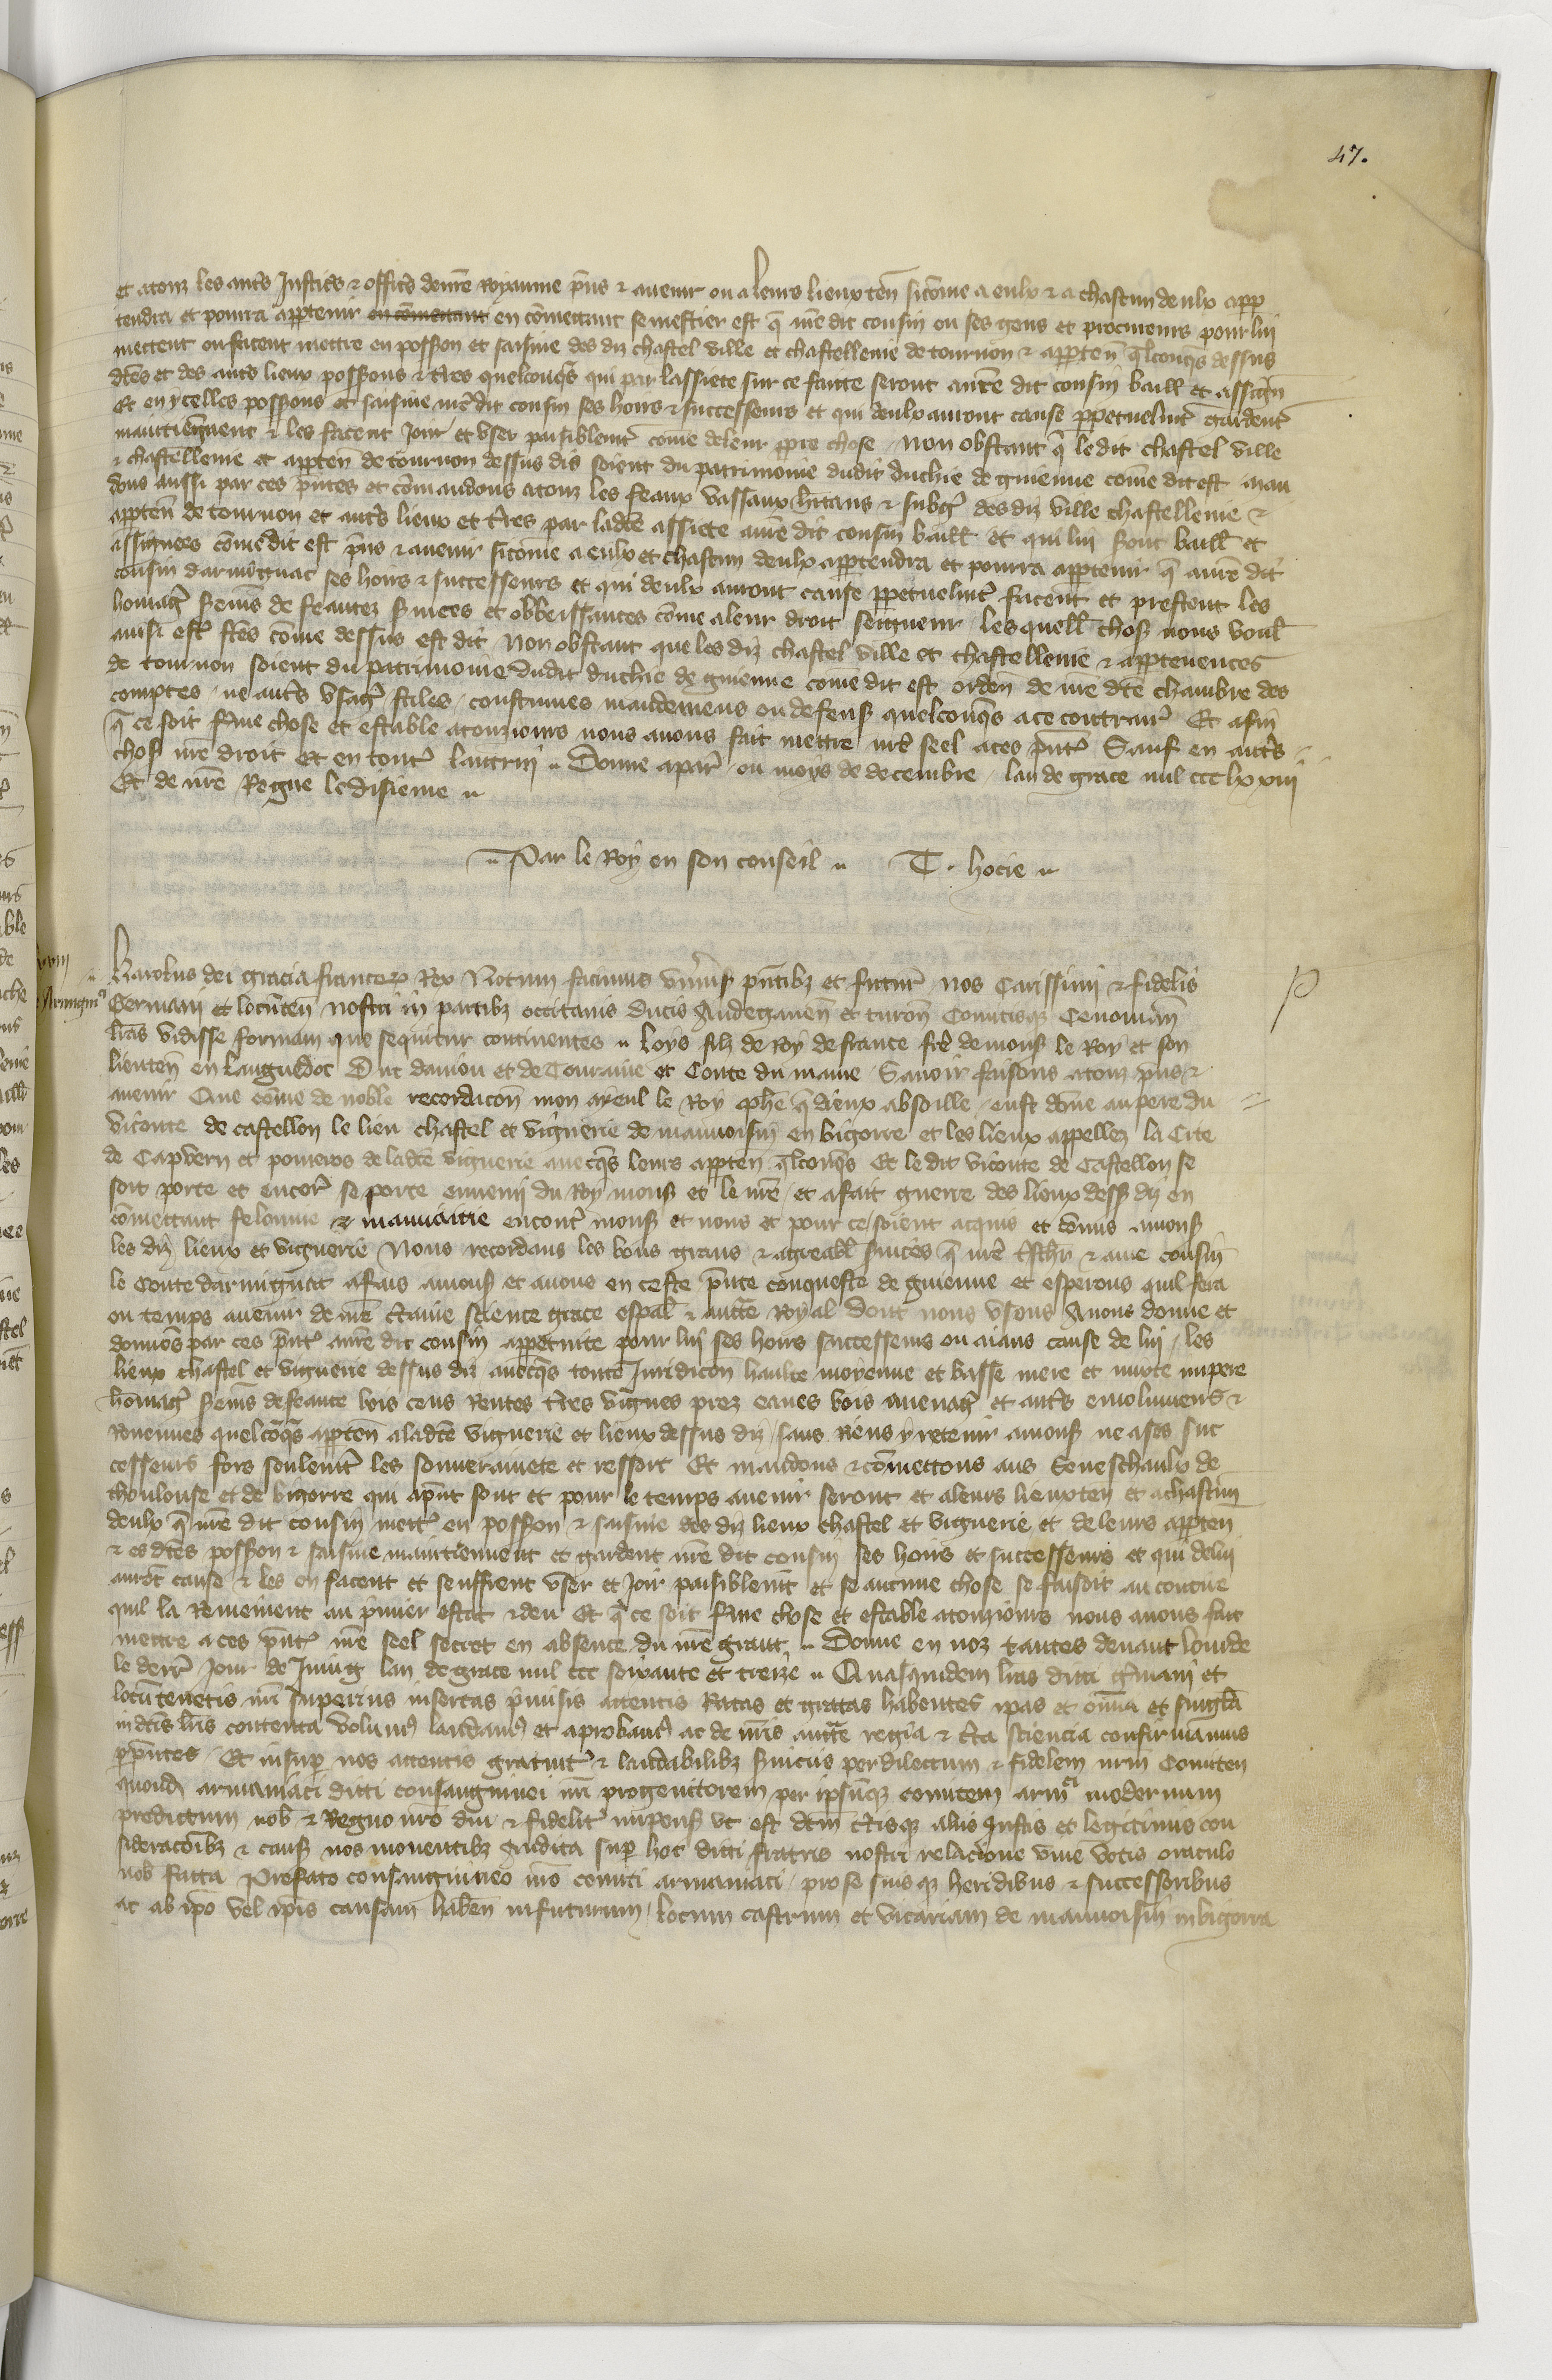 47.
et a touz les autrs Justicrs & officrs de nre royaume pns & avenir ou a leurs lieuxten si come a eulx & a chascun deulx app
tendra et pourra appartenir en comettant en comettant se mestier est q nre dit cousin ou ses gens et procureurs pour lui
mettent ou facent mettre en possion et saisine des diz chastel ville et chastellenie de tournon & apparten qlconqs dessus
dtes et des autrs lieux possions & tres quelconqs qui par lassiete sur ce faitte seront a nre dit cousin baill et assign
Et en ycelles possions et saisine nre dit cousin ses hoirs & successeurs et qui deulx auront cause ppetuelmt gardent
maintiengnent & les facent Joir et user paisiblemt come de leur ppre chose Non obstant q le dit chastel ville
& chastellenie et apparten de tournon dessus dis soient du patrimoine dudit duchie de guienne come dit est man
dons aussi par ces pntes et comandons a touz les feaux vassaux hitans & subgr des diz ville chastellenie &
apparten de tournon et autrs lieux et tres par ladte assiete a nre dit cousin baill et qui lui sont baill et
assignees come dit est pns & avenir si come a eulx et chascun deulx appartendra et pourra appartenir q a nre dit
cousin darmignac ses hoirs & successeurs et qui deulx auront cause ppetuelmt facent et prestent les
homagr sermes de feautez svices et obbeissances come a leur droit seigneur les quell chos nous voul
ainsi estr ftes come dessus est dit Non obstant que les diz chastel ville et chastellenie & appartenences
de tournon soient du patrimoine dudit duchie de guienne come dit est orden de nre dte chambre des
comptes ne autrs usagr stiles constumes mandemens ou defens quelconqs a ce contrair Et afin
q ce soit fme chose et estable a touzjours nous avons fait mettre nre seel a ces pntr Sauf en autrs
chos nre droit et en toutr lautrui Donne a par ou moys de decembre lan de grace mil ccc lx xiii
Et de nre Regne le disieme
Par le Roy en son conseil T. hocie
Karolus dei gracia francor Rex Notum facimus univs pntibz et futur nos Carissimi & fidelis
Germani et locuten nostri in partibz occitanis ducis Andegaven et turon Comitisqz Cenoman
lras vidisse formam que sequitur continentes Loys filz de Roy de france fre de mons le Roy et son
lieuten en languedoc Duc danjou et de Touraine et Conte du maine Savoir faisons a touz pns &
avenir Que come de noble recordacon mon ayeul le Roy phe q dieux absoille eust done au pere du
viconte de castellon le lieu chastel et viguerie de mauvoisin en bigorre et les lieux appellez la Cite
de Capvern et poumeros de ladte viguerie avecqs leurs apparten qlconqs Et le dit viconte de Castellon se
soit porte et encor se porte ennemi du Roy mons et le nre et a fait guerre des lieux dess diz en
comettant felonnie & mauvaitie encontr mons et nous et pour ce soient acquis et venus a mons
les diz lieux et viguerie Nous recordans les bons grans & agreabl svices q nre tschr & ame cousin
le Conte darmignac a fais a mons et a nous en ceste pnte conqueste de guienne et esperons quil fera
ou temps avenir de nre ctaine science grace espal & autte royal dont nous usons Avons donne et
donnos par ces pntr a nre dit cousin a ppetuite pour lui ses hoirs successeurs ou aians cause de lui les
lieux chastel et viguerie dessus diz avecqs toute Juridicon haulte moyenne et basse mere et mixte impere
homagr sermes de feaute bois cens Rentes tres vignes prez eaues bois avenagr et autrs emolumens &
Revenues quelcoqs apparten a ladte viguerie et lieux dessus diz sans Riens y retenir a mons ne a ses suc
cesseurs fors seulemt les souverainete et ressort Et mandons & comettons aus Seneschaulx de
thoulouse et de bigorre qui a pnt sont et pour le temps avenir seront et a leurs lieuxten et a chascun
deulx q nre dit cousin mettr en possion & saisine des diz lieux chastel et viguerie et de leurs apparten
& es dtes possion & saisine maintiennent et gardent nre dit cousin ses hoirs et successeurs et qui de lui
auront cause & les en facent et seuffrent user et Joir paisiblemt et se aucune chose se faisoit au contre
quil la Remeinent au pmier estat & deu Et q ce soit fme chose et estable a touzjours nous avons fait
mettre a ces pntr nre seel secret en absence du nre grant Donne en noz tantes devant lourde
le derr Jour de Juing lan de grace mil ccc soixante et treize Quasquidem lras dicti gmani et
locutenetis nri superius insertas pmisis attentis Ratas et gratas habentes ipas et omia et singla
in dtis lris contenta volums laudams et aprobams ac de nris autte regia & cta sciencia confirmamus
p pntes Et insup nos attentis gratuitr & laudabilibz sviciis per dilectum & fidelem nrm Comiten
quond armaniaci dicti consanguinei nri progenitorem per ipsumqz comitem armci modernum
predictum nob & Regno nro diu & fidelitr impens ut est dtm ctisqz aliis Justis et legitimis con
sideracoibz & caus nos moventibz Audita sup hoc dicti fratris nostri relacione vive vocis oraculo
nob facta Prefato consanguineo nro comiti armaniaci pro se suisqz heridibus & successoribus
ac ab ipo vel ipis causam haben in futurum locum castrum et vicariam de mauvoisin in bigorra